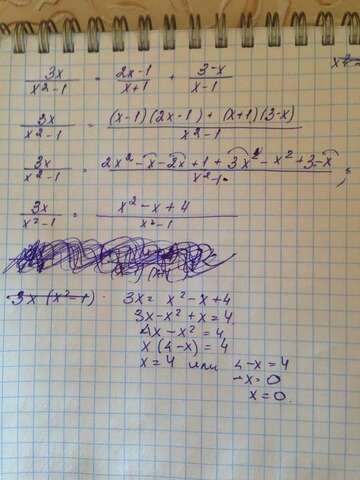 3x/(x²-1) = (2x-1)/(x+1) + (3-x)/(x-1)
3x/(x²-1) = ((x-1)(2x-1) + (x+1)(3-x))/(x²-1)
3x/(x²-1) = (2x²-x-2x+1+3x-x²+3-x)/(x²-1) ;
3x/(x²-1) = (x²-x+4)/(x²-1)
3x (x²-1) 3x = x²-x+4
3x-x²+x=4
4x-x²=4
x(4-x)=4
x=4 или 4-x=4
-x=0
x=0.